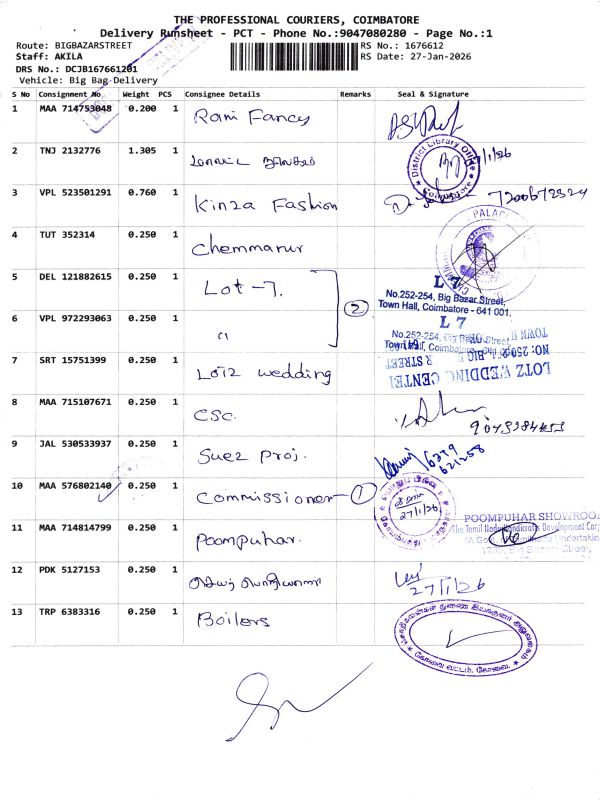 THE PROFESSIONAL COURIERS, COIMBATORE
Delivery Runsheet - PCT - Phone No.:9047080280 - Page No.:1
Route: BIGBAZARSTREET
RS No.: 1676612
Staff: AKILA
RS Date: 27-Jan-2026
DRS No.: DCJB167661201
Vehicle: Big Bag Delivery
S No Consignment No. Weight PCS Consignee Details Remarks Seal & Signature
1 MAA 714753048 0.200 1 Rani Fancy
2 TNJ 2132776 1.305 1 மாவட்ட நூலகம்
District Library Office
3 VPL 523501291 0.760 1 Kinza Fashion 7200672324
4 TUT 352314 0.250 1 Chemmanur
PALACE
5 DEL 121882615 0.250 1 Lot-7.
L 7
No.252-254, Big Bazar Street,
Town Hall, Coimbatore - 641 001.
2
6 VPL 972293063 0.250 1 "
L 7
No.252-254, Big Bazar Street,
Town Hall, Coimbatore
7 SRT 15751399 0.250 1 Lotz wedding
LOTZ WEDDING CENTER
8 MAA 715107671 0.250 1 CSC.
9 JAL 530533937 0.250 1 Suez Proj.
10 MAA 576802140 0.250 1 Commissioner 1
27/1/26
11 MAA 714814799 0.250 1 Poompuhar.
POOMPUHAR SHOWROO
The Tamil Nadu Handicrafts Development Corp
Big Bazaar Street,
12 PDK 5127153 0.250 1
27/1/26
13 TRP 6383316 0.250 1 Boilers
கோவை வட்டம், கோவை.